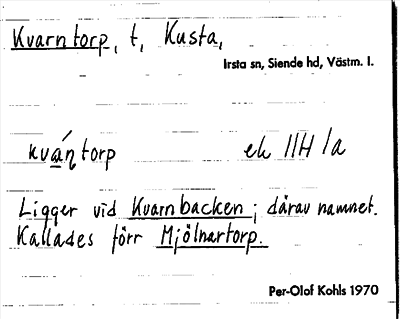 Kvarntorp, t, Kusta,
Irsta sn, Siende hd, Västm. l.
kváŋtorp ek IIH 1a
Ligger vid Kvarnbacken; därav namnet.
Kallades förr Mjölnartorp.
Per-Olof Kohls 1970